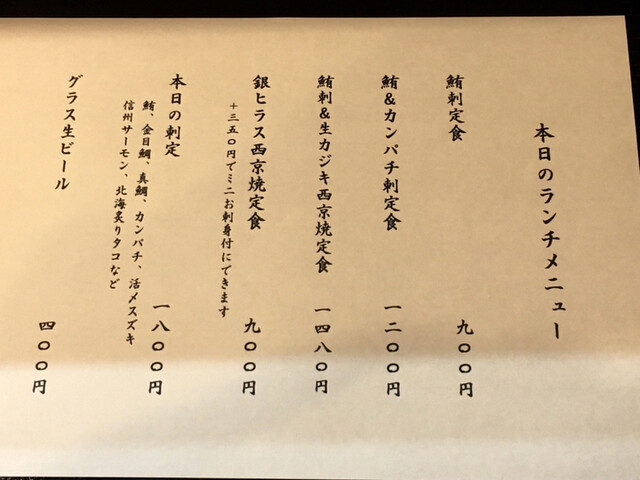 本日のランチメニュー
鮪刺定食 九〇〇円
鮪&カンパチ刺定食 一二〇〇円
鮪刺&生カジキ西京焼定食 一四八〇円
銀ヒラス西京焼定食 九〇〇円
+三五〇円でミニお刺身付にできます
本日の刺定 一八〇〇円
鮪、金目鯛、真鯛、カンパチ、活〆スズキ
信州サーモン、北海炙りタコなど
グラス生ビール 四〇〇円